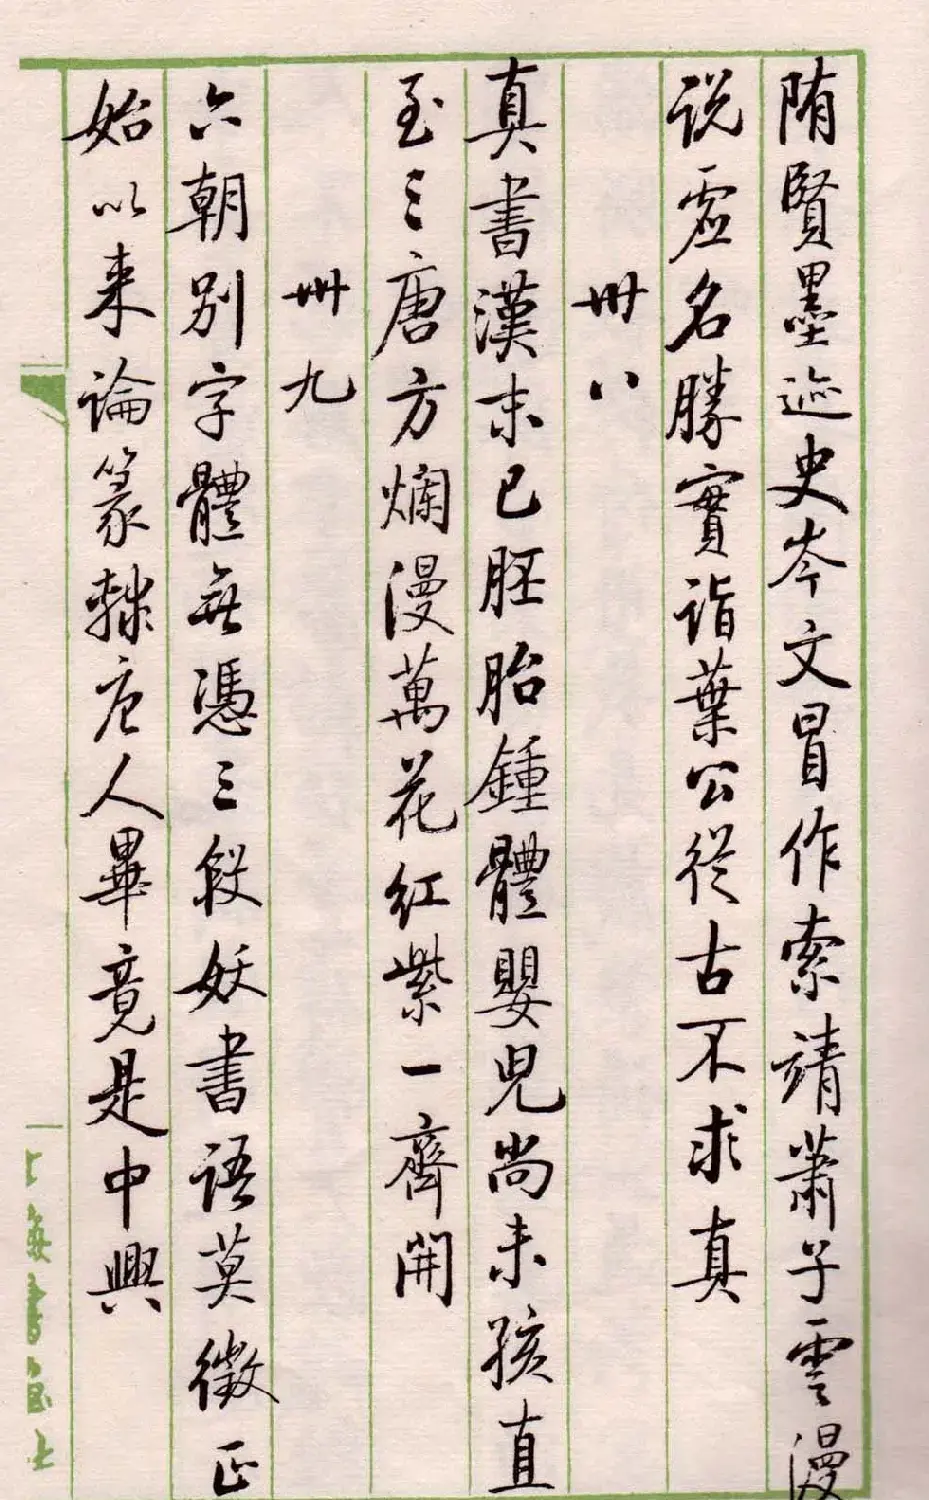 隋賢墨迹史岑文冒作索靖蕭子雲漫
説虚名勝實詣葉公從古不求真
卅八
真書漢末已胚胎鍾體嬰兒尚未孩直
至三唐方爛漫萬花红紫一齊開
卅九
六朝别字體無憑三段妖書語莫徵正
始以来論篆隸唐人畢竟是中興